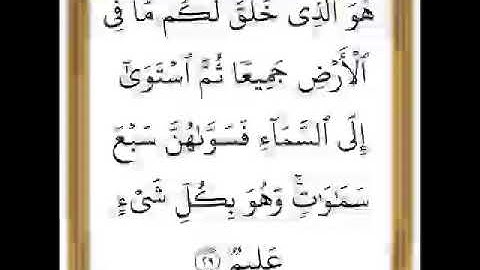 هُوَ ٱلَّذِى خَلَقَ لَكُم مَّا فِى
ٱلْأَرْضِ جَمِيعًا ثُمَّ ٱسْتَوَىٰٓ
إِلَى ٱلسَّمَآءِ فَسَوَّىٰهُنَّ سَبْعَ
سَمَـٰوَٰتٍ ۚ وَهُوَ بِكُلِّ شَىْءٍ
عَلِيمٌ ٢٩